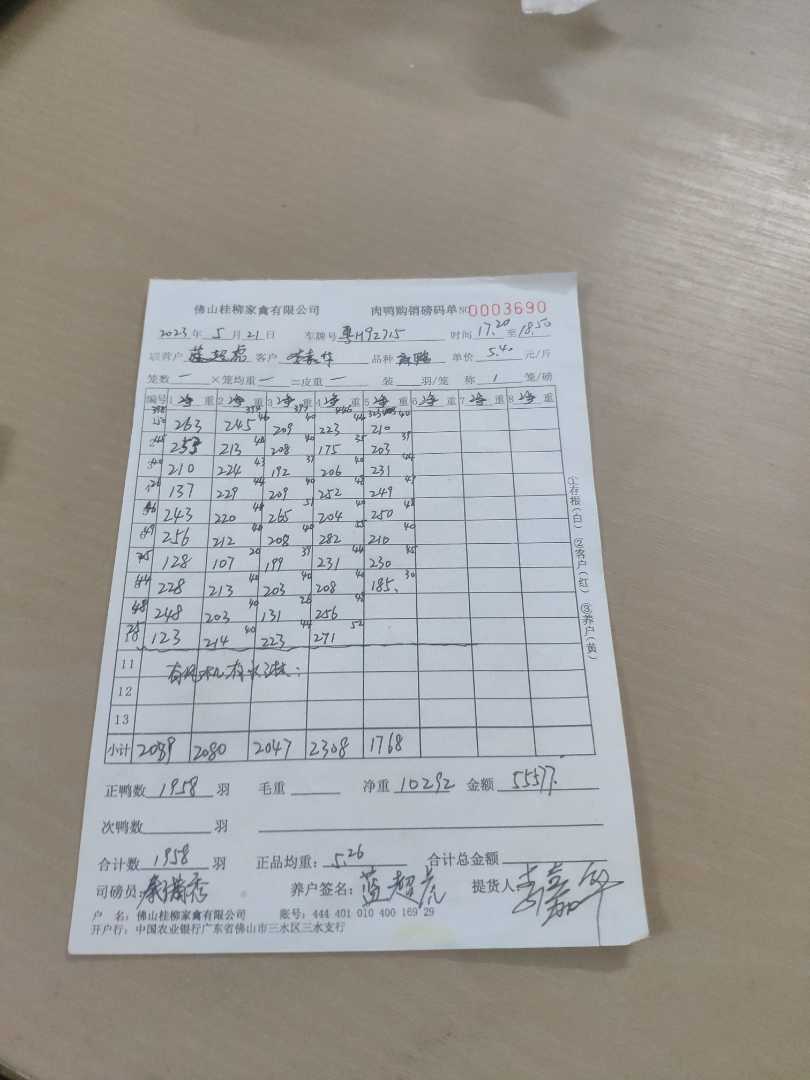 佛山桂柳家禽有限公司 肉鸭购销磅码单 NO 0003690
2023 年 5 月 21 日 车牌号 粤H92715 时间 17.20 至 18.50
养户 蓝超虎 客户 李嘉华 品种 单价 5.40 元/斤
笼数 一 ×笼均重 一 =皮重 一 装 羽/笼 称 1 笼/磅
编号 1 净 重 2 净 重 3 净 重 4 净 重 5 净 重 6 净 重 7 净 重 8 净 重
50 263 245 46 209 40 223 44 210 40
255 213 40 208 40 175 35 203 39
40 210 224 43 192 37 206 40 231 44
26 137 229 44 209 40 252 48 249 47
46 243 220 265 51 204 40 250 48
49 256 212 40 208 40 282 55 210 40
25 128 107 20 199 39 231 44 230 45
44 228 213 40 203 40 208 40 185 30
48 248 203 40 131 26 256 48
123 214 40 223 44 271 52
11
12
13
小计 2089 2080 2047 2308 1768
正鸭数 1958 羽 毛重 净重 10292 金额 55577.
次鸭数 羽
合计数 1958 羽 正品均重: 5.26 合计总金额
司磅员: 养户签名: 蓝超虎 提货人 李嘉华
户 名: 佛山桂柳家禽有限公司 账号: 444 401 010 400 169 29
开户行: 中国农业银行广东省佛山市三水区三水支行
①存根(白) ②客户(红) ③养户(黄)